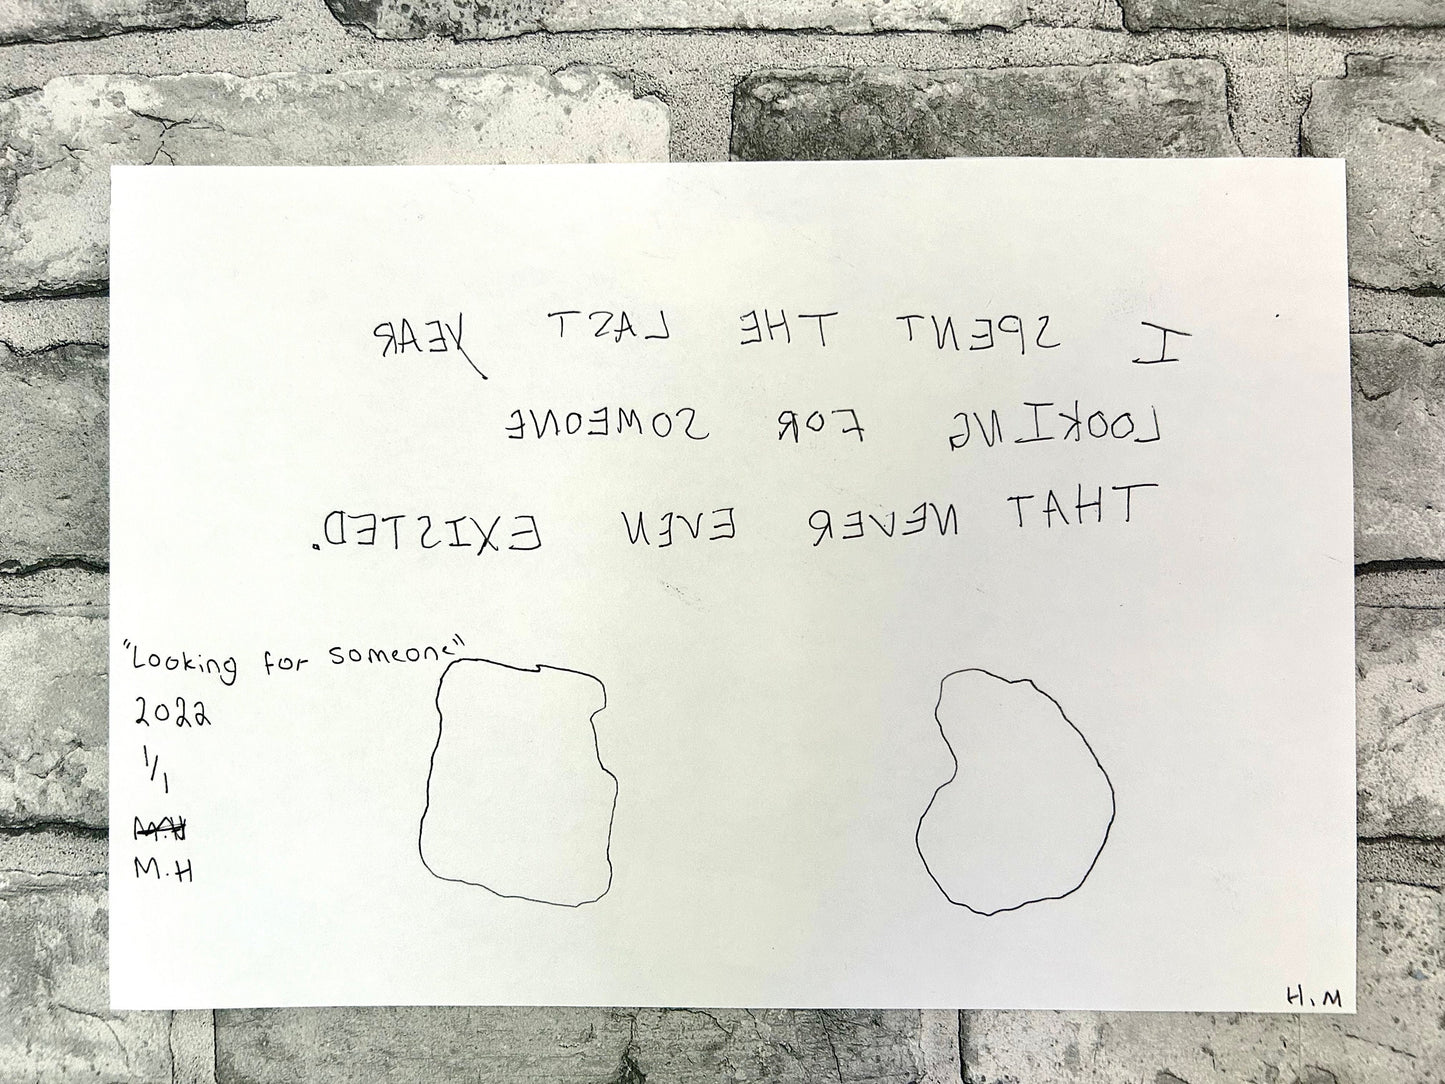 I SPENT THE LAST YEAR
LOOKING FOR SOMEONE
THAT NEVER EVEN EXISTED.
"Looking for someone"
2022
1/1
M.H
H.M